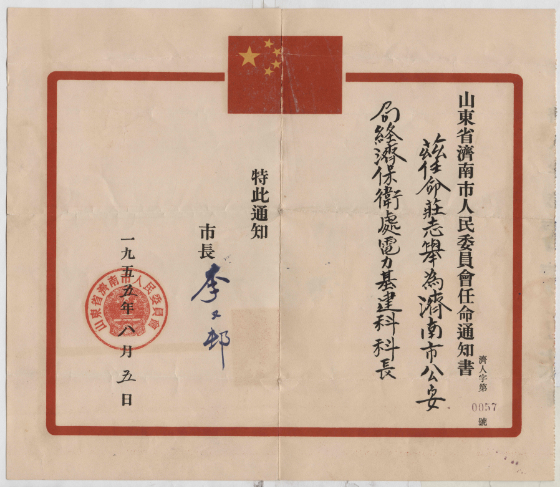 山東省濟南市人民委員會任命通知書
濟人字第0057號
茲任命莊志舉為濟南市公安
局經濟保衛處電力基建科科長
特此通知
市長
一九五五年八月五日
山東省濟南市人民委員會